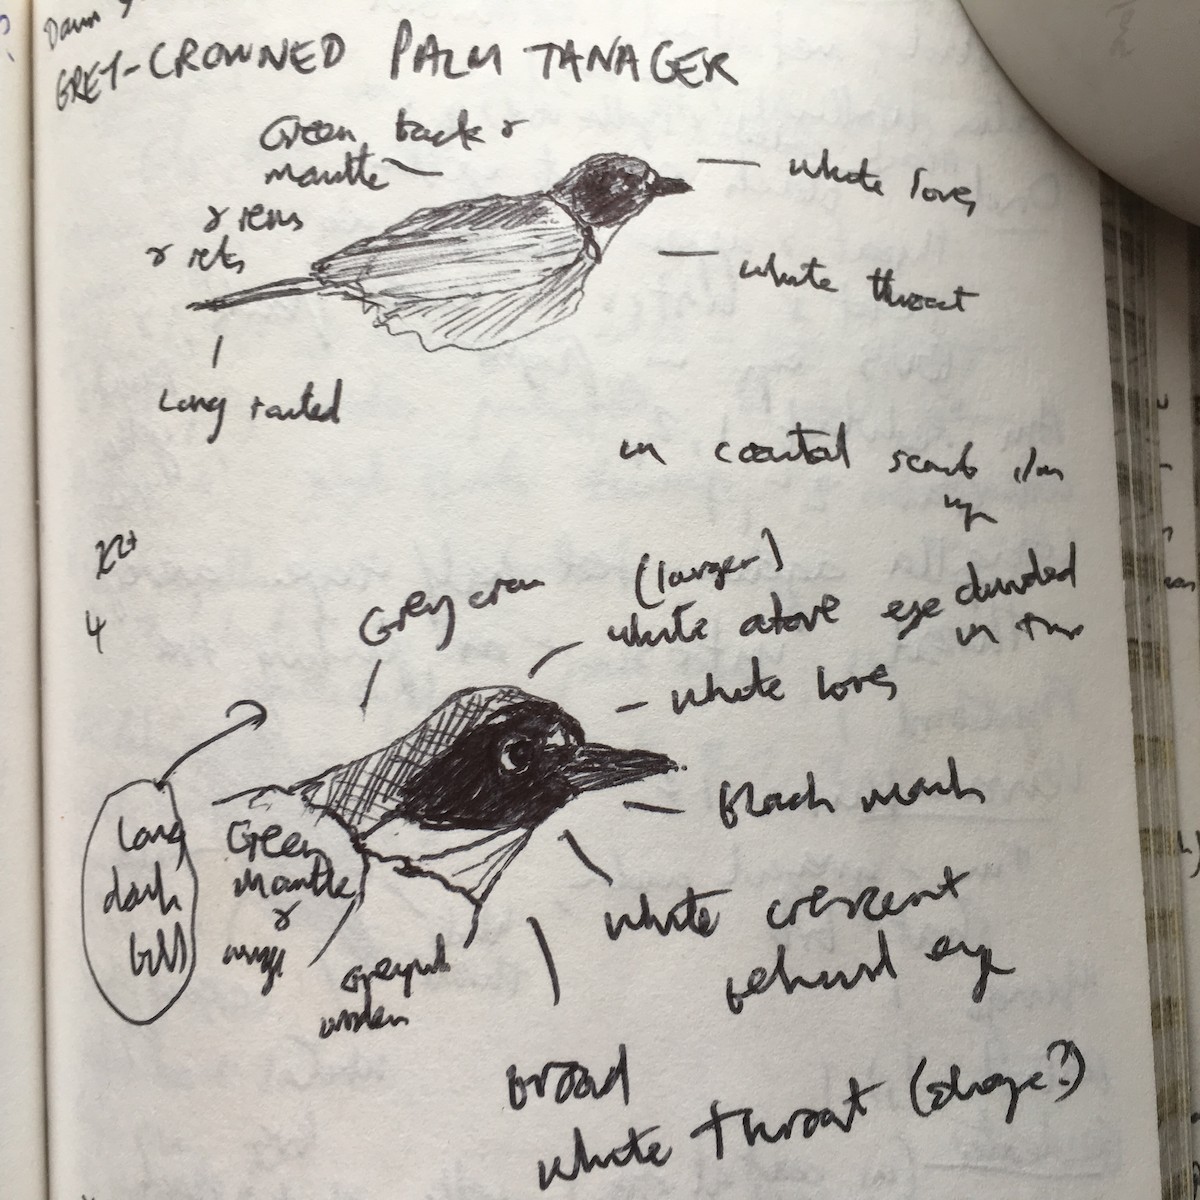 Dawn
GREY-CROWNED PALM TANAGER
Green back &
mantle
& rems
& rets
white lores
white throat
Long tailed
in coastal scrub
Grey crown
(larger)
white above eye divided
in two
white lores
black mask
white crescent
behind eye
Long
dark
bill
Green
mantle
&
wings
Greyish
under
broad
white throat (shape?)
4